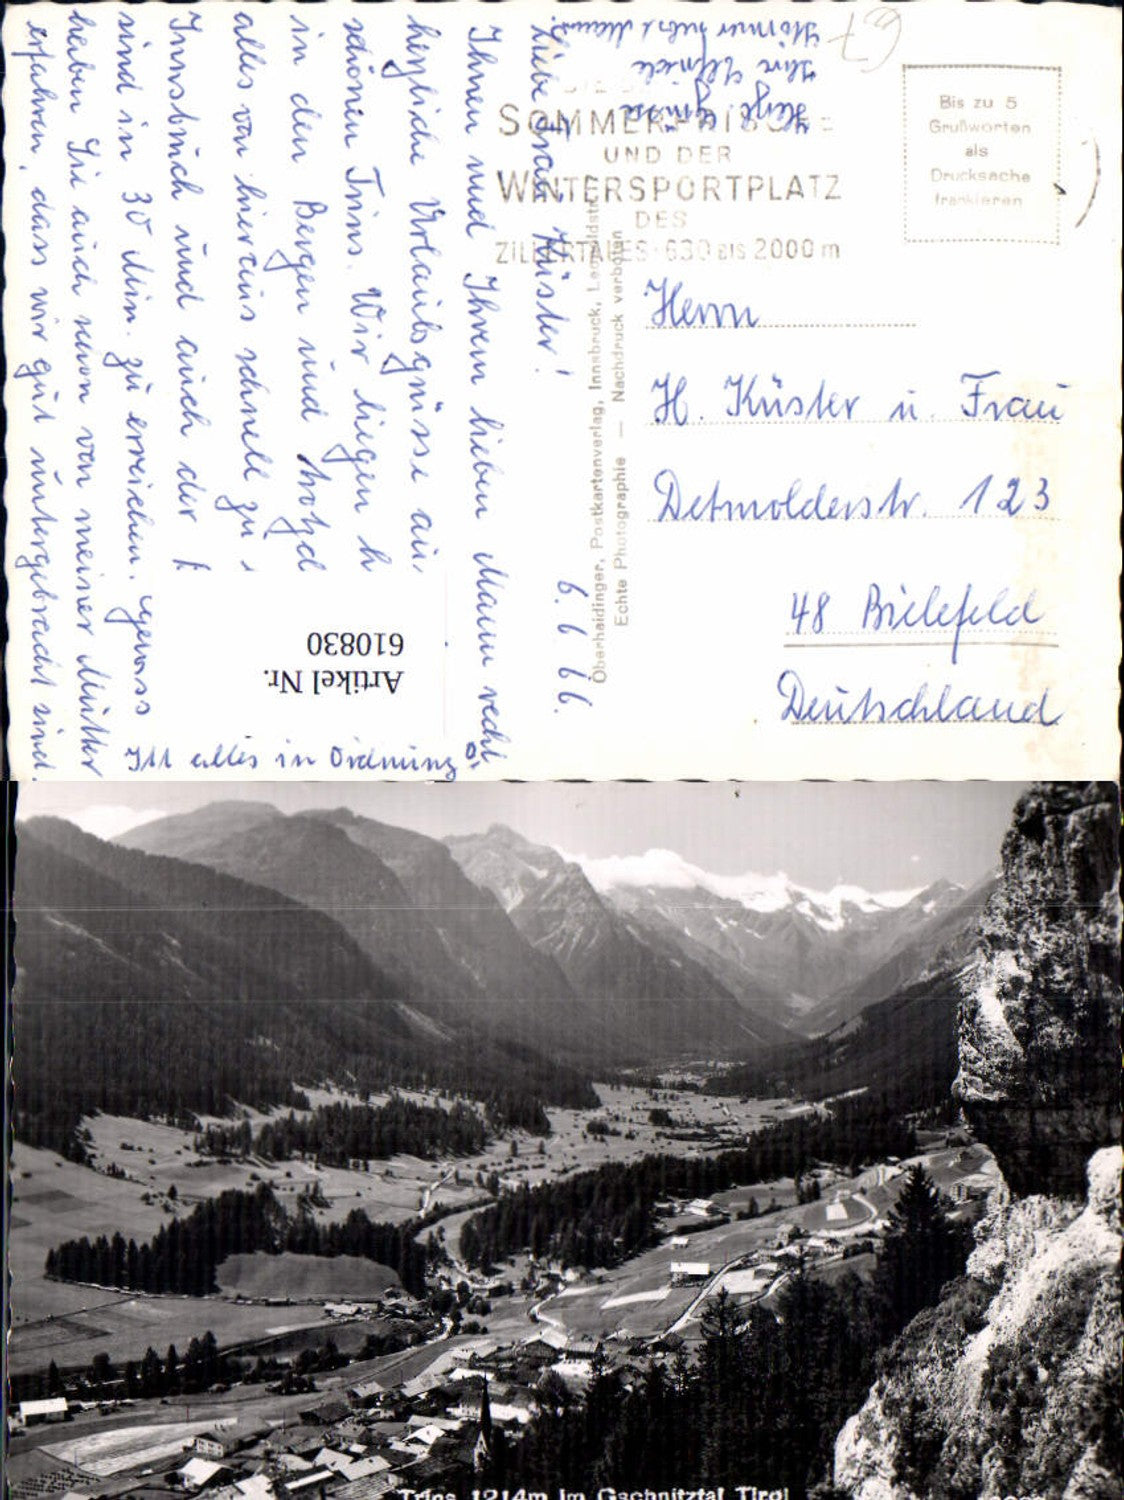 Liebe Frau Küster!
Ihnen und Ihrem lieben Mann recht
herzliche Urlaubsgrüsse aus
schönen Trins. Wir liegen h
in den Bergen und trotzd
alles von hieraus schnell zu
Innsbruck und auch der
sind in 30 Min. zu erreichen.
haben Sie auch schon von meiner Mutter
erfahren, dass wir gut untergebracht sind.
alles in Ordnung
Herzl. Grüsse
Ihre
6.6.66.
67
Artikel Nr.
610830
SOMMERFRISCHE
UND DER
WINTERSPORTPLATZ
DES
ZILLERTALES · 630 BIS 2000 m
Bis zu 5
Grußworten
als
Drucksache
frankieren
Oberhaidinger, Postkartenverlag, Innsbruck, Leopoldstr.
Echte Photographie — Nachdruck verboten
Herrn
H. Küster u. Frau
Detmolderstr. 123
48 Bielefeld
Deutschland
Trins 1214m im Gschnitztal Tirol